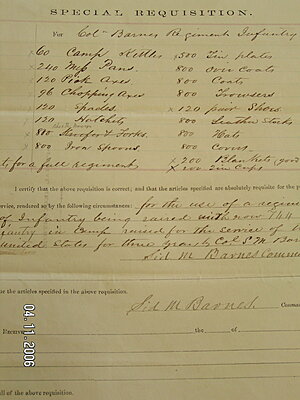 SPECIAL REQUISITION.
For Col Barnes Regiment Infantry
60 Camp Kettles 500 Tin plates
240 Mess Pans. 800 Over Coats
120 Pick Axes 800 Coats
96 Chopping Axes 800 Trowsers
120 Spades. 120 pair Shoes
120 Hatchets 800 Leather Stocks
800 Knives & Forks. 800 Hats
800 Iron Spoons 800
for a full regiment 200 Blankets (good
Tin Cups
I certify that the above requisition is correct; and that the articles specified are absolutely requisite for the p
ervice, rendered so by the following circumstances: for the use of a regim
of Infantry being raised with now 714
in Camp raised for the service of t
United States for three years Col S. M. Bar
Sid M Barnes Comman
ue the articles specified in the above requisition.
Sid M Barnes. Comma
Receive the of
ll of the above requisition.
04.11.2006